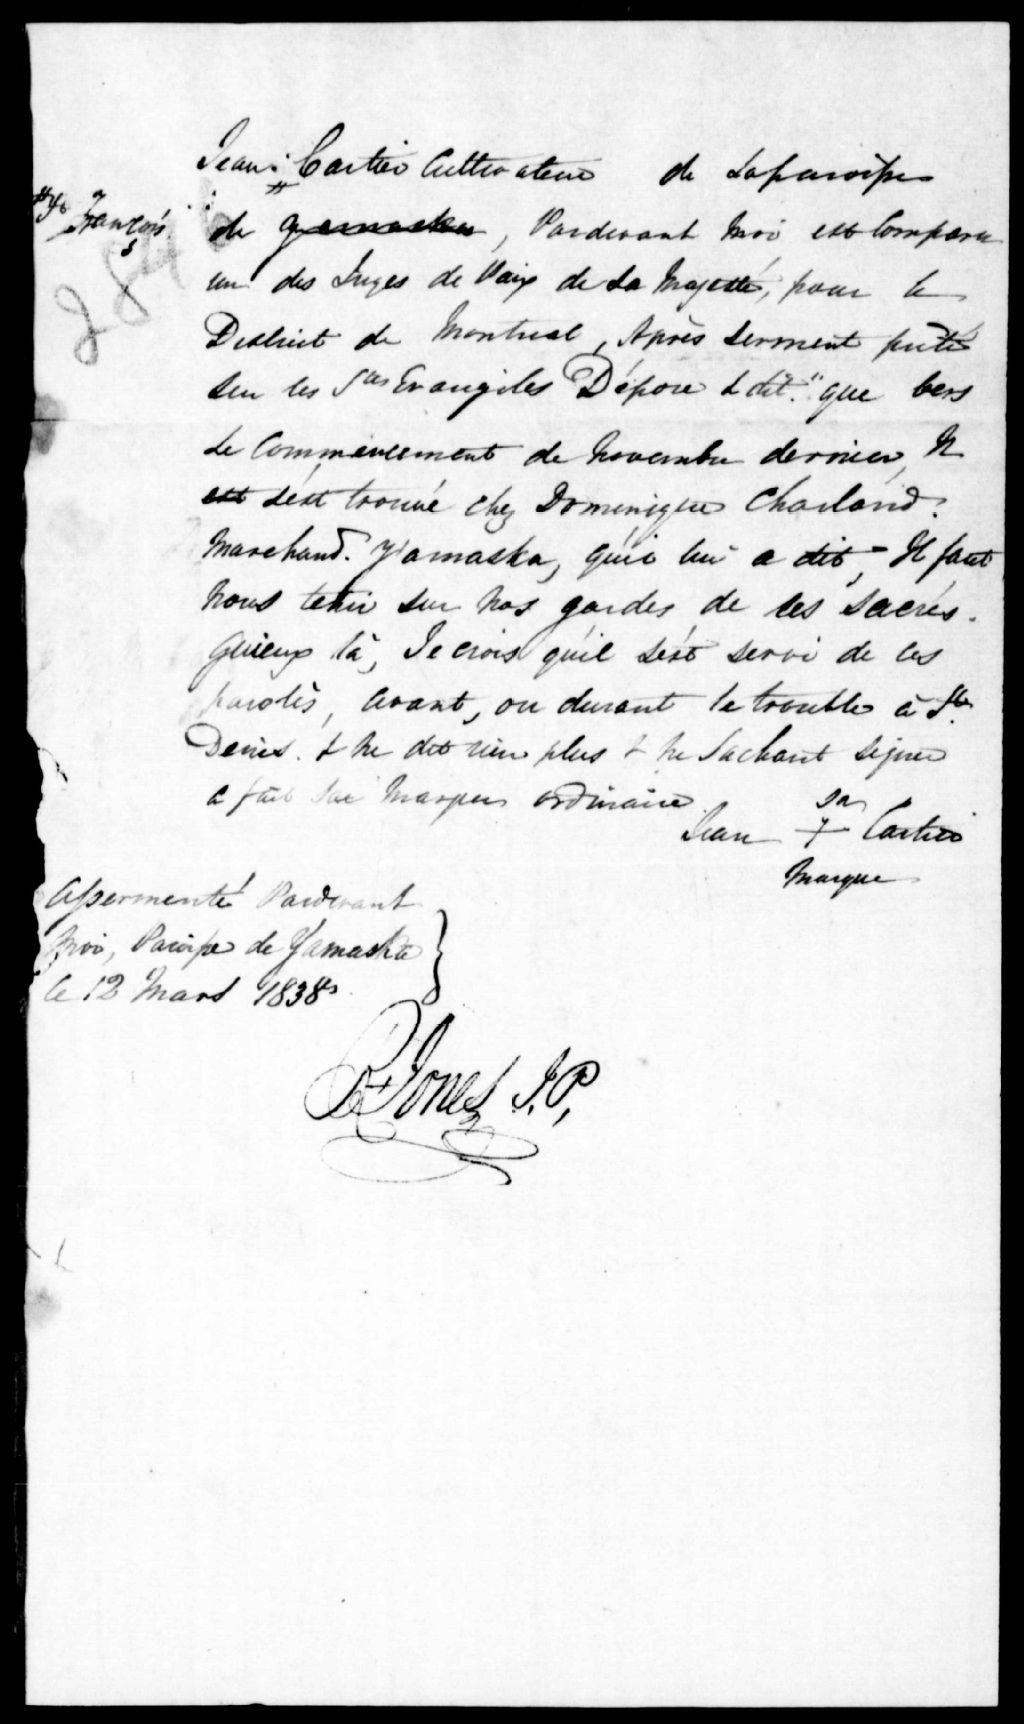 Jean Cartier Cultivateur de La paroisse
# St François
de Yamaska, Pardevant Moi est Comparu
un des Juges de Paix de Sa Majesté, pour le
District de Montreal, Après Serment prété
Sur les Sts Evangiles Dépose & dit. que vers
Le Commencement de Novembre dernier, Il
est s'est trouvé chez Dominique Charland.
Marchand. Yamaska, qui lui a dit, Il faut
Nous tenir sur nos gardes, de ces sacrés
gueux là, Je crois qu'il s'est servi de ces
paroles, avant, ou durant le trouble à St
Denis. & ne dit rien plus & ne Sachant Signer
a fait sa Marque ordinaire
Jean sa + Cartier
Marque
Assermenté Pardevant
Moi, Paroisse de Yamaska
le 12 Mars 1838
R Jones J.P,